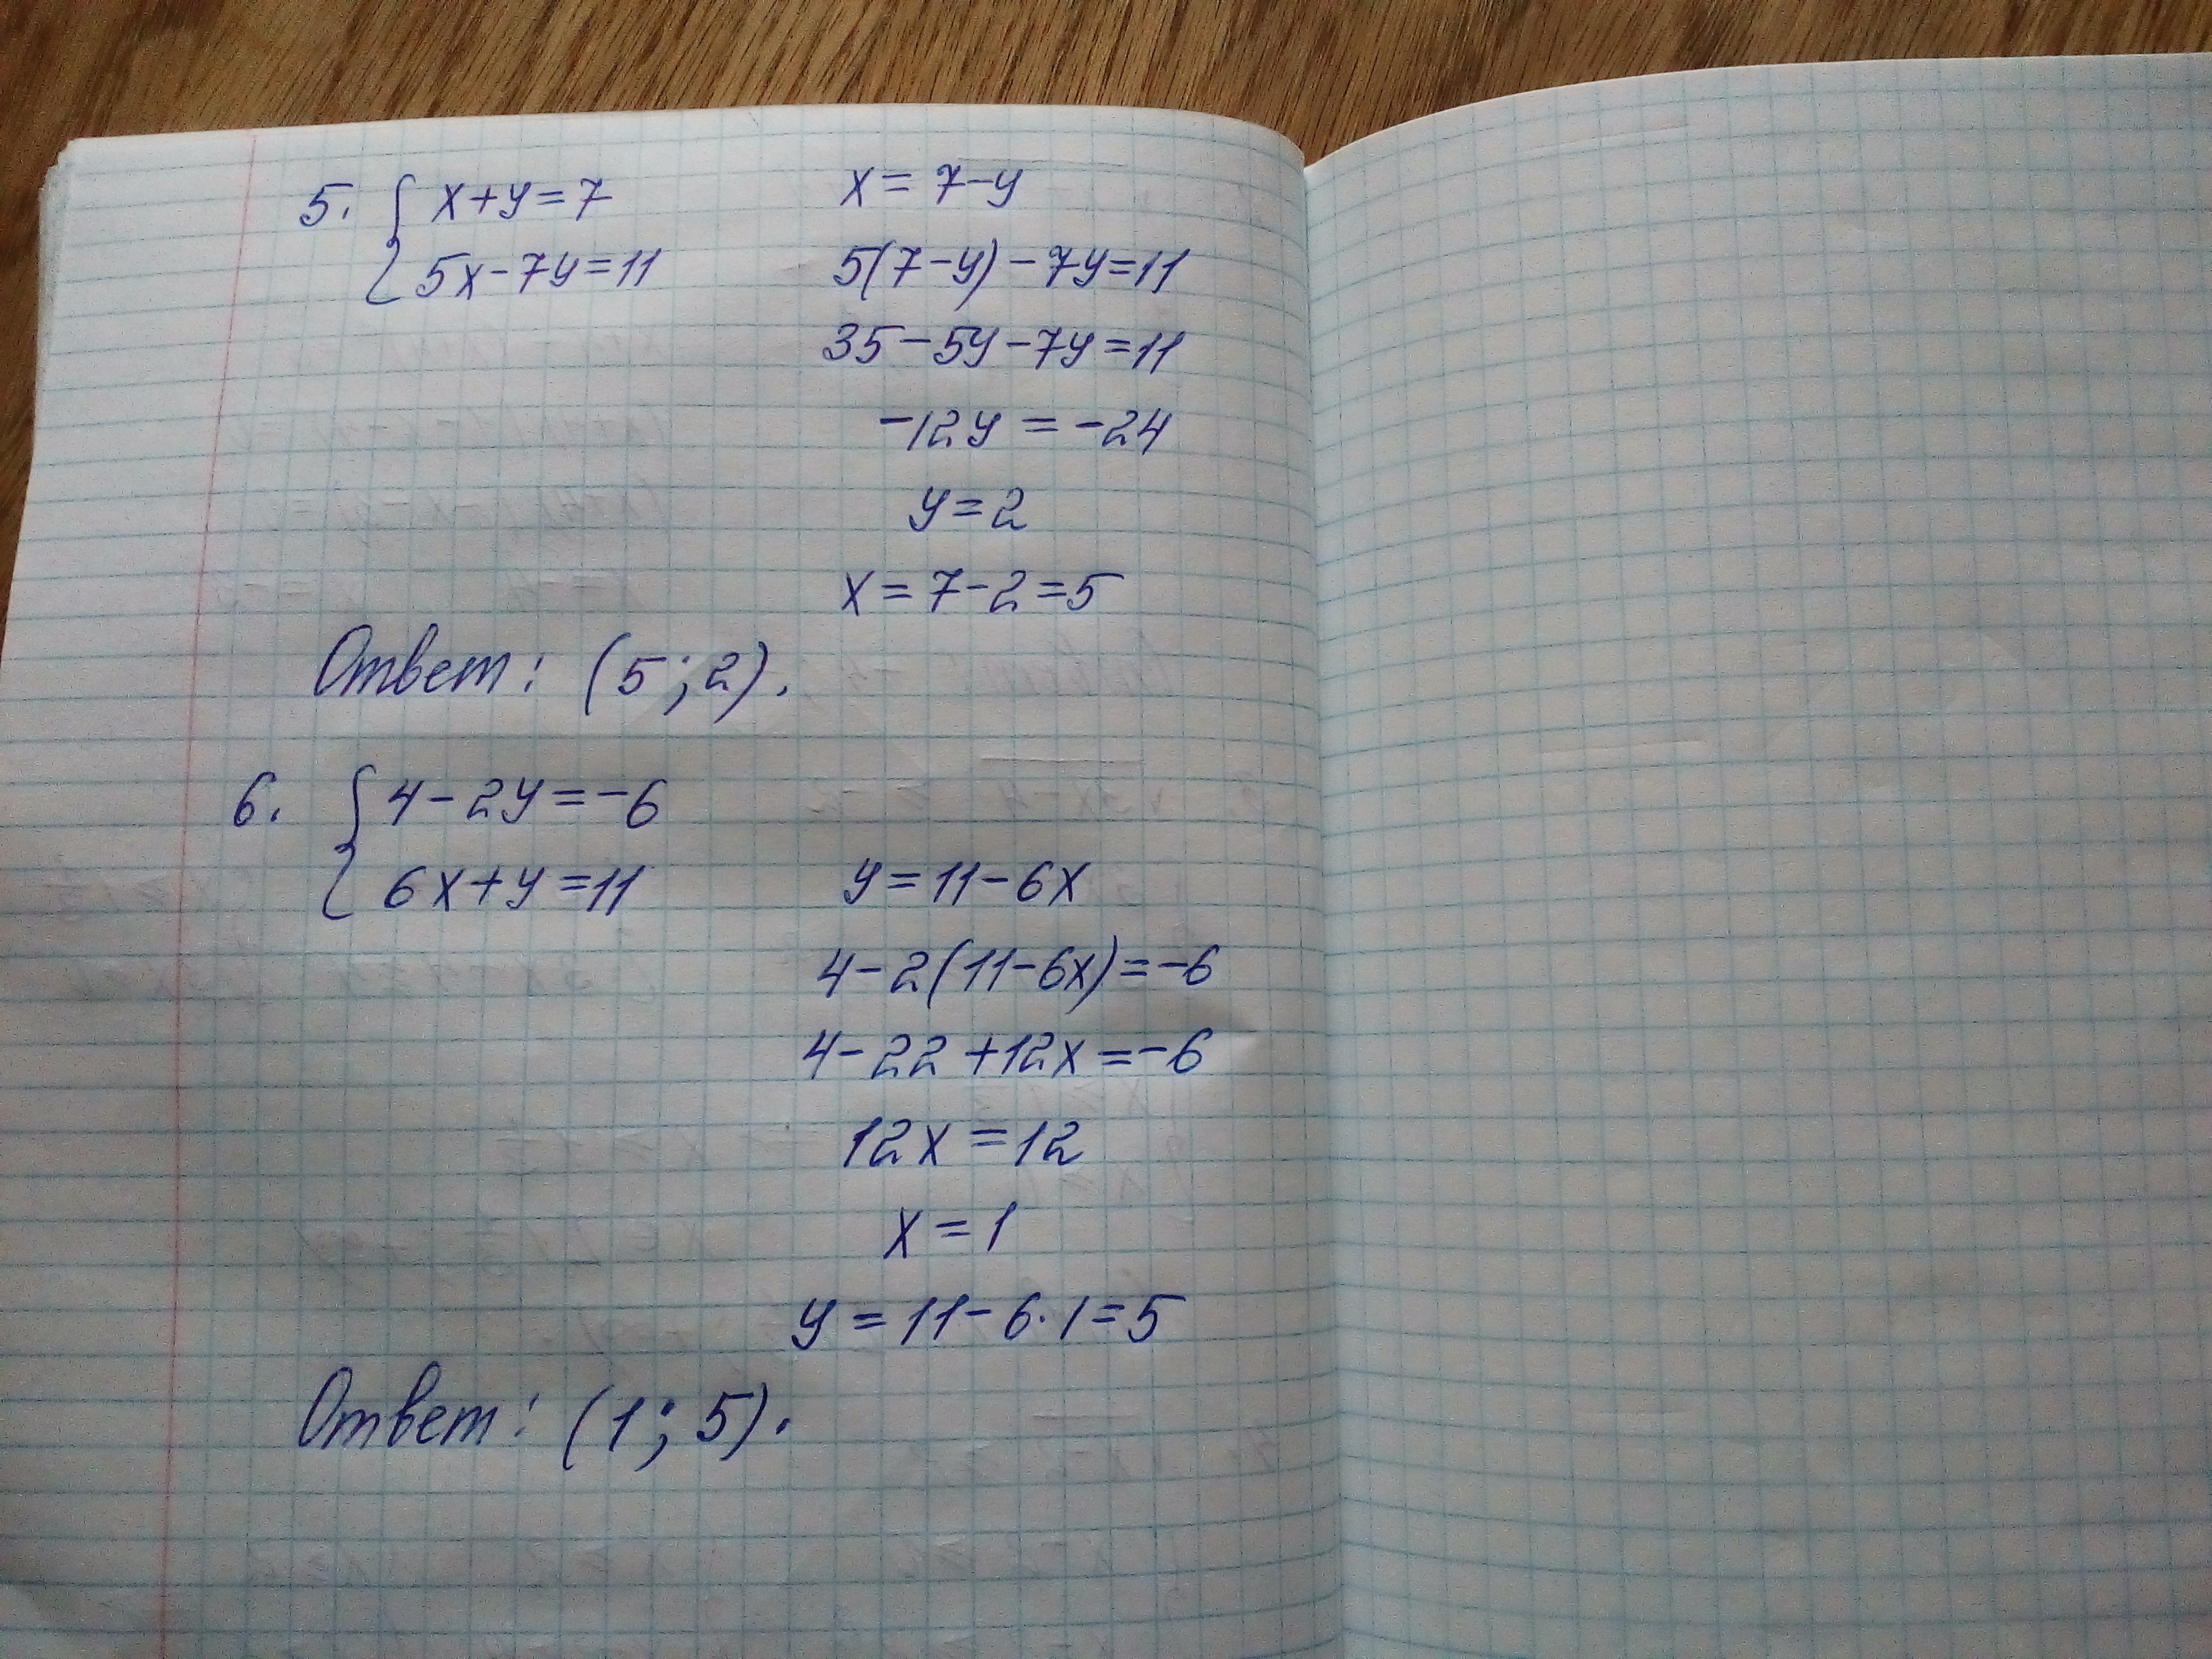 5. { x+y=7
5x-7y=11
x=7-y
5(7-y)-7y=11
35-5y-7y=11
-12y=-24
y=2
x=7-2=5
Ответ: (5;2).
6. { 4-2y=-6
6x+y=11
y=11-6x
4-2(11-6x)=-6
4-22+12x=-6
12x=12
x=1
y=11-6·1=5
Ответ: (1;5).